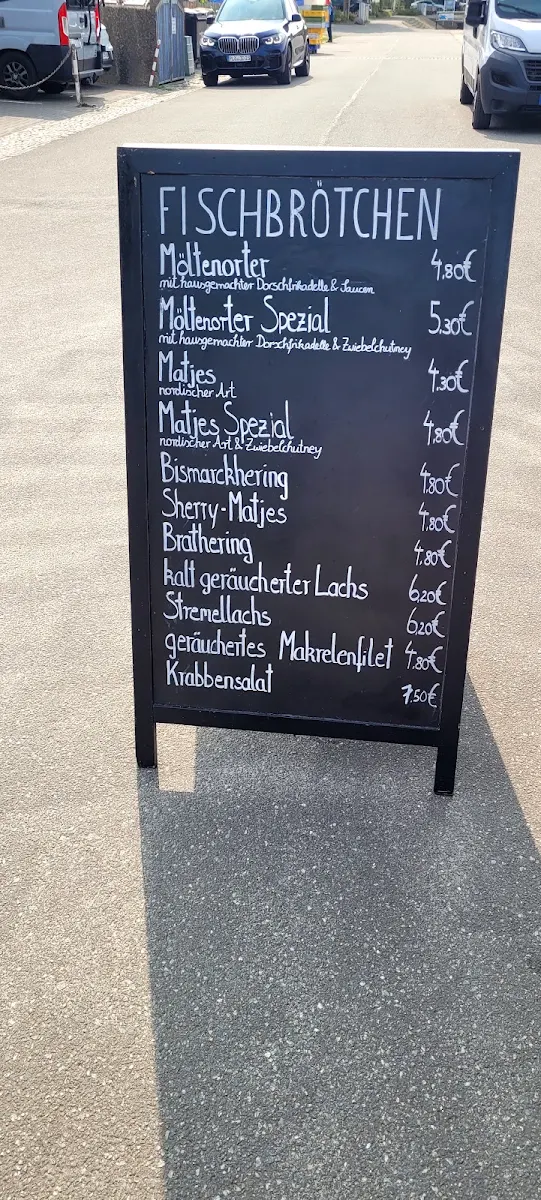 FISCHBRÖTCHEN
Möltenorter 4.80€
mit hausgemachter Dorschfrikadelle & Saucen
Möltenorter Spezial 5.30€
mit hausgemachter Dorschfrikadelle & Zwiebelchutney
Matjes 4.30€
nordischer Art
Matjes Spezial 4.80€
nordischer Art & Zwiebelchutney
Bismarckhering 4.80€
Sherry-Matjes 4.80€
Brathering 4.80€
kalt geräucherter Lachs 6.20€
Stremellachs 6.20€
geräuchertes Makrelenfilet 4.80€
Krabbensalat 7.50€